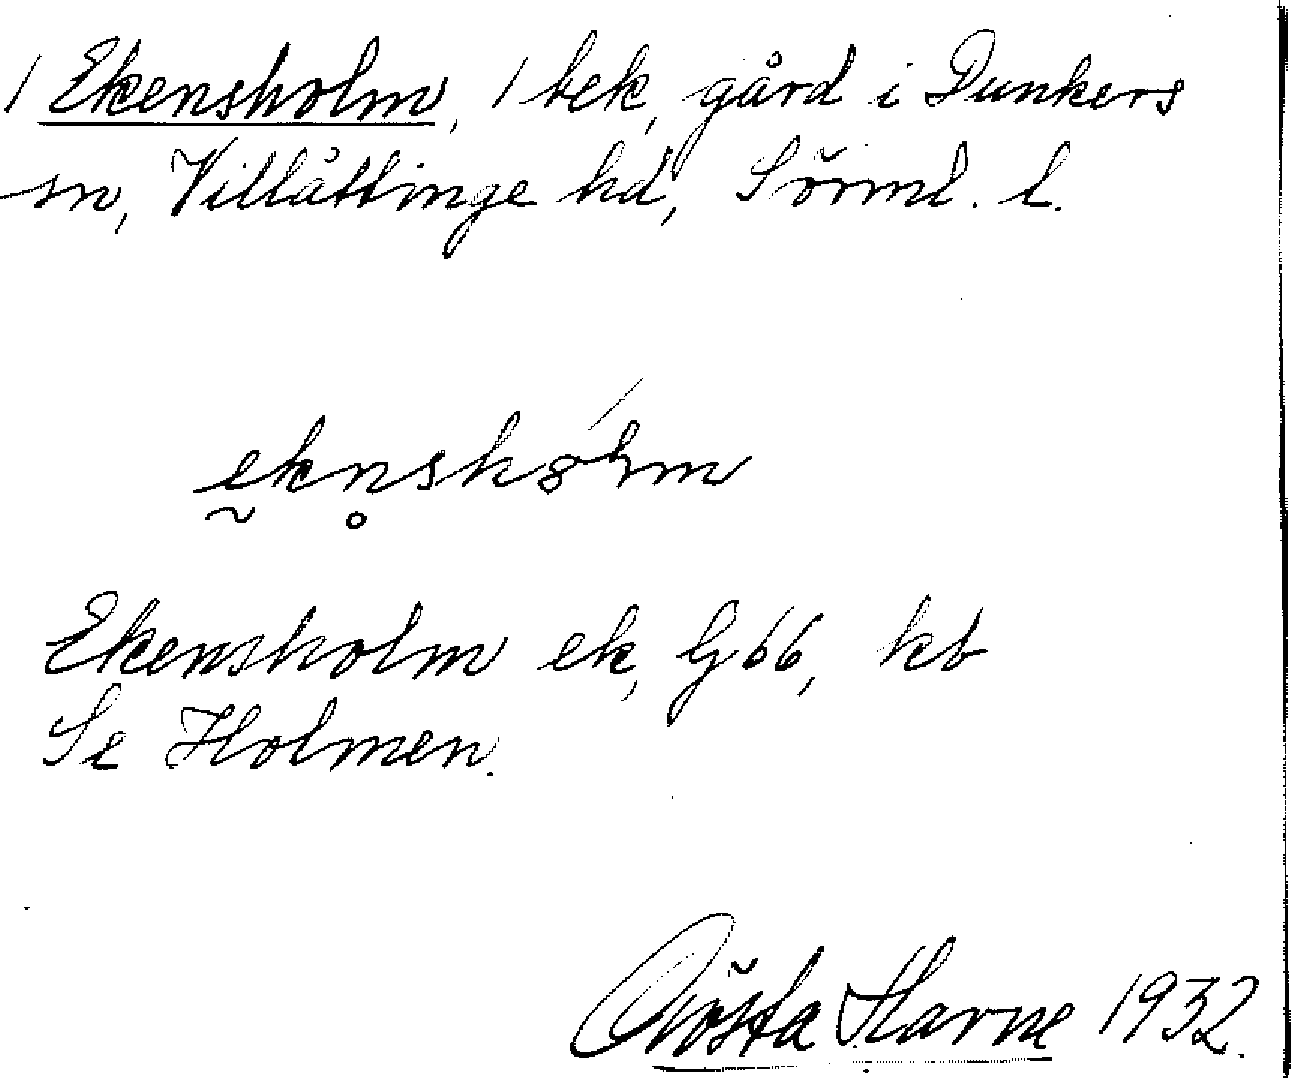 1 Ekensholm, 1 bek, gård i Dunkers
sn, Villåttinge hd, Sörml. l.
Ekensholm ek, G66, kb
Se Holmen.
Gösta Harne 1932.